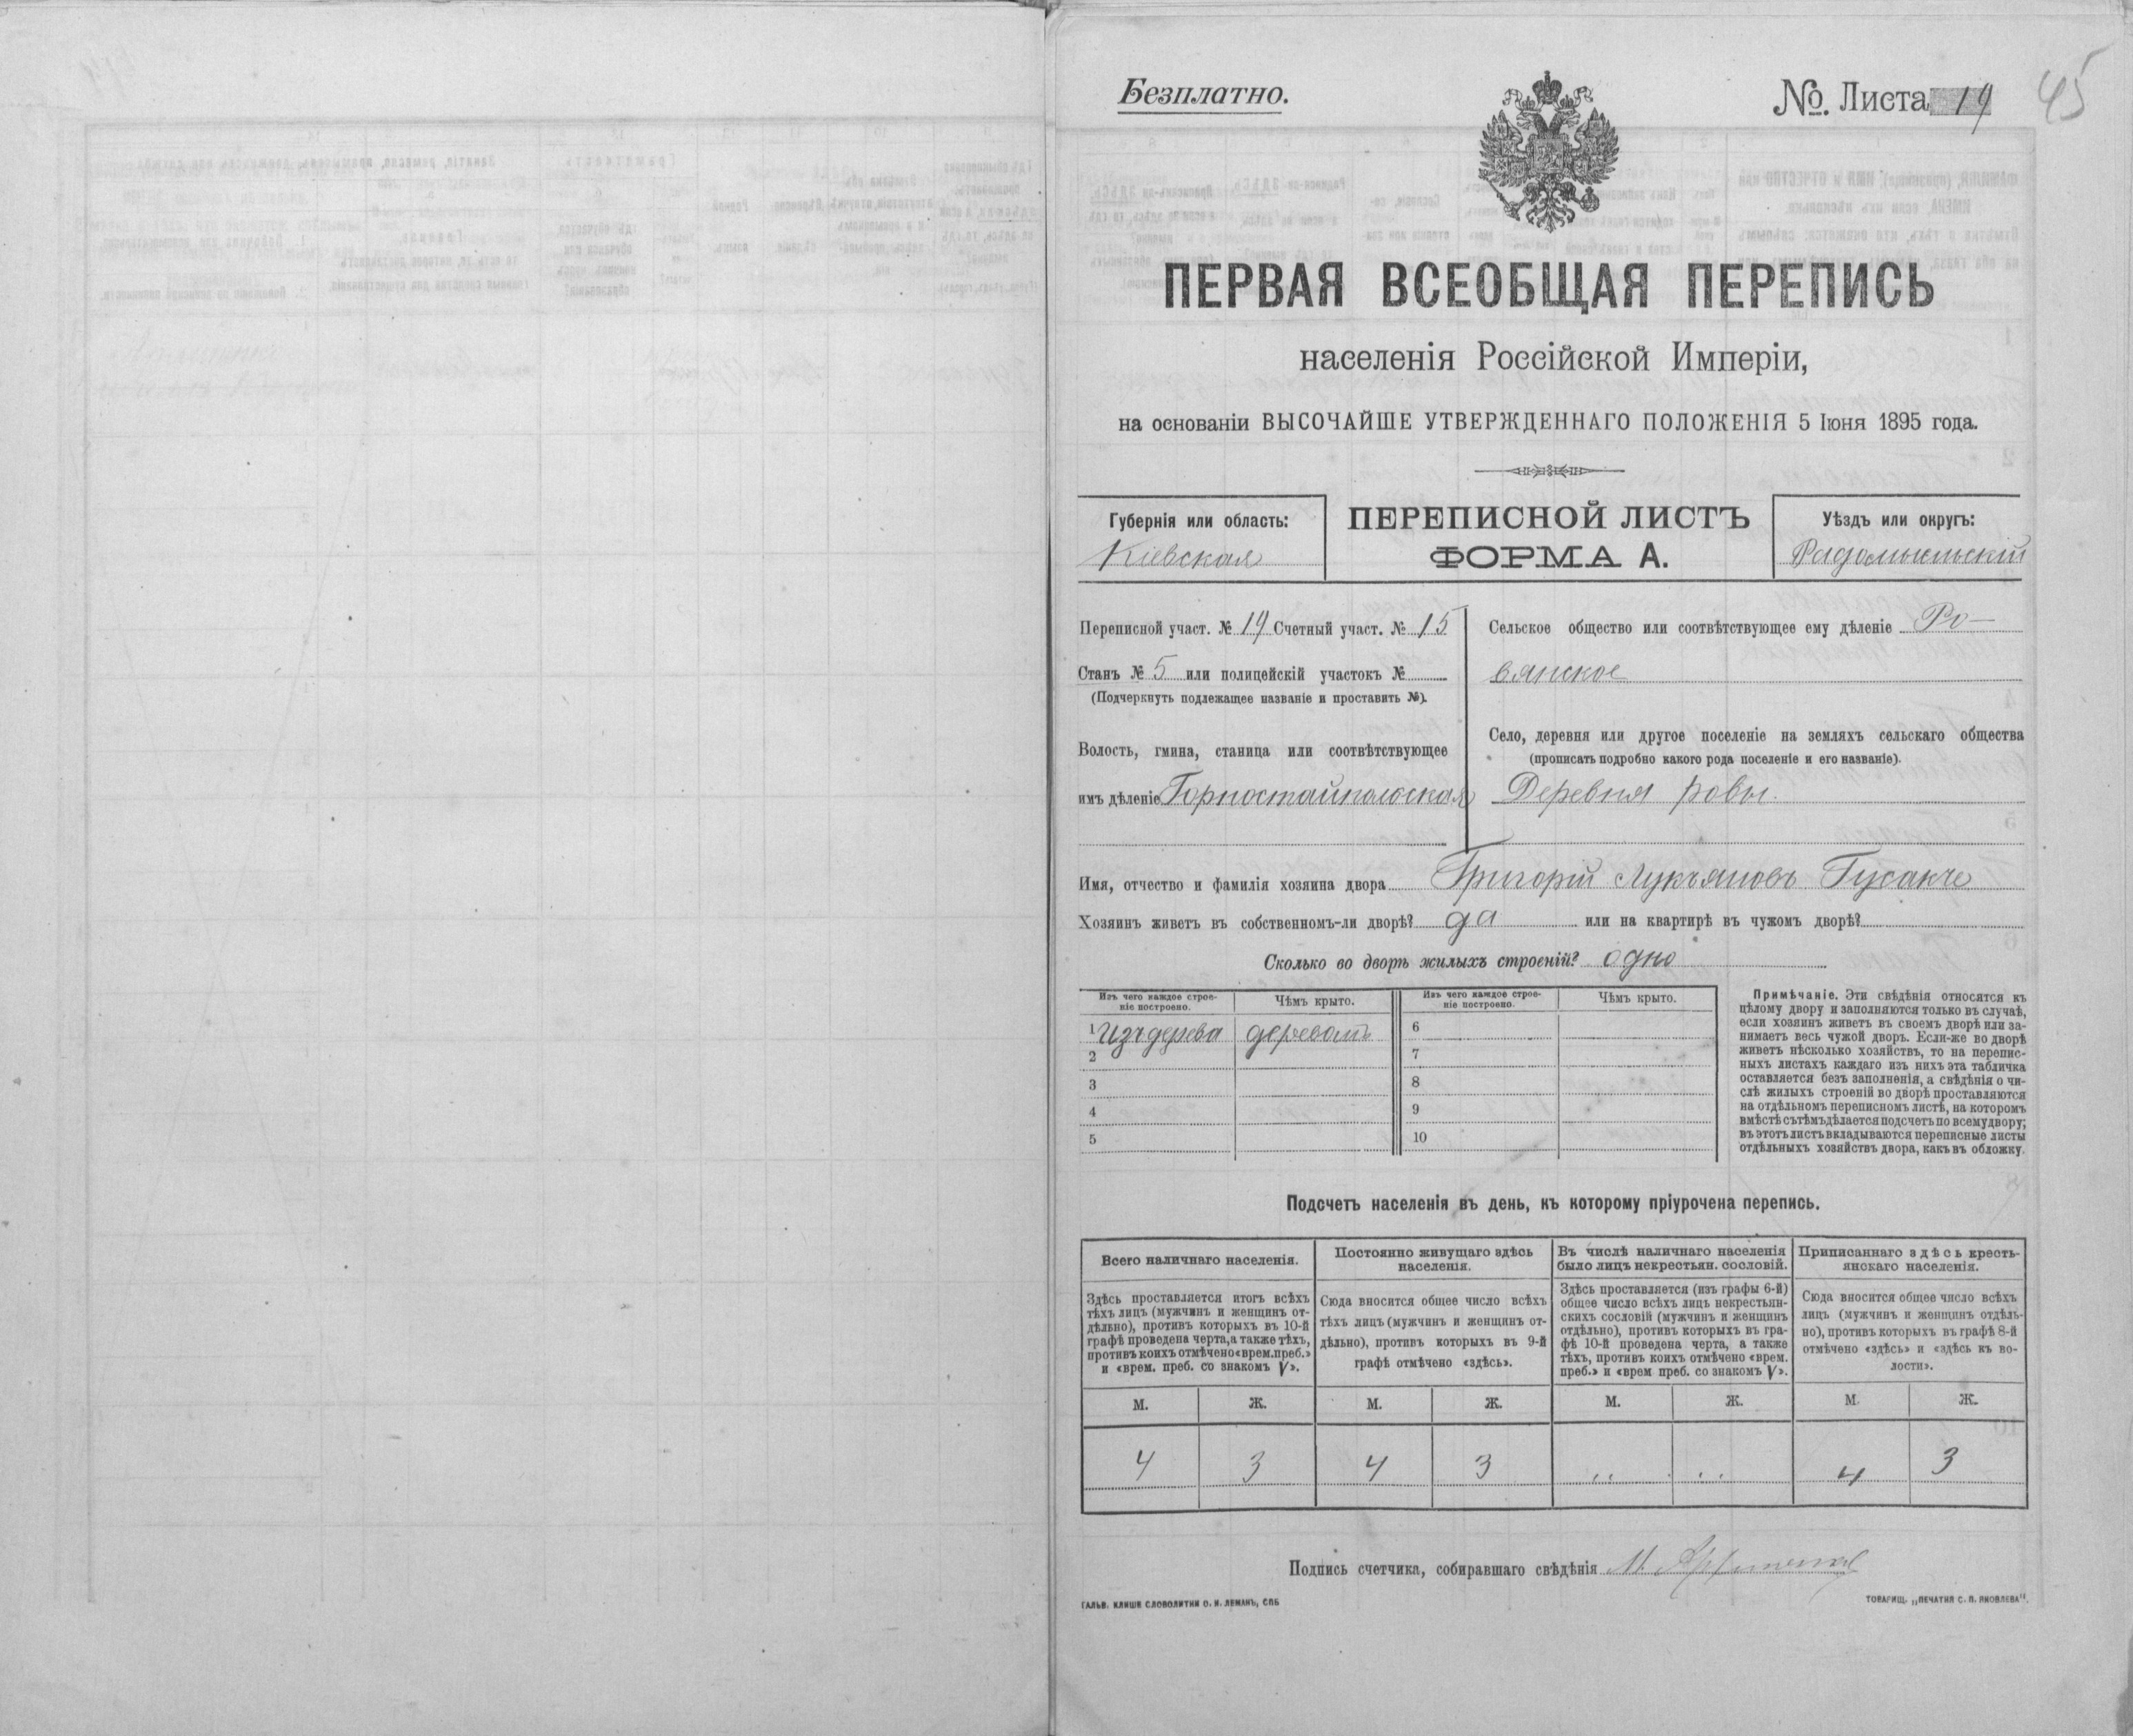 Безплатно.
№. Листа 19
45
ПЕРВАЯ ВСЕОБЩАЯ ПЕРЕПИСЬ
населенія Россійской Имперіи,
на основаніи ВЫСОЧАЙШЕ УТВЕРЖДЕННАГО ПОЛОЖЕНІЯ 5 Іюня 1895 года.
Губернія или область:
Кіевская
ПЕРЕПИСНОЙ ЛИСТЪ
ФОРМА А.
Уѣздъ или округъ:
Радомысльскій
Переписной участ. № 19 Счетный участ. № 15
Станъ № 5 или полицейскій участокъ №
(Подчеркнуть подлежащее названіе и проставить №).
Волость, гмина, станица или соотвѣтствующее
имъ дѣленіе Горностайпольская
Сельское общество или соотвѣтствующее ему дѣленіе Ро-
вянское
Село, деревня или другое поселеніе на земляхъ сельскаго общества
(прописать подробно какого рода поселеніе и его названіе).
Деревня ровы.
Имя, отчество и фамилія хозяина двора Григорій Лукъяновъ
Хозяинъ живетъ въ собственномъ-ли дворѣ? да или на квартирѣ въ чужомъ дворѣ?
Сколько во дворѣ жилыхъ строеній? одно
Изъ чего каждое строе-
ніе построено.
Чѣмъ крыто.
Изъ чего каждое строе-
ніе построено.
Чѣмъ крыто.
1 Изъ дерева деревомъ 6
2 7
3 8
4 9
5 10
Примѣчаніе. Эти свѣдѣнія относятся къ
цѣлому двору и заполняются только въ случаѣ,
если хозяинъ живетъ въ своемъ дворѣ или за-
нимаетъ весь чужой дворъ. Если-же во дворѣ
живетъ нѣсколько хозяйствъ, то на перепис-
ныхъ листахъ каждаго изъ нихъ эта табличка
оставляется безъ заполненія, а свѣдѣнія о чи-
слѣ жилыхъ строеній во дворѣ проставляются
на отдѣльномъ переписномъ листѣ, на которомъ
вмѣстѣ съ тѣмъ дѣлается подсчетъ по всему двору;
въ этотъ листъ вкладываются переписные листы
отдѣльныхъ хозяйствъ двора, какъ въ обложку.
Подсчетъ населенія въ день, къ которому пріурочена перепись.
Всего наличнаго населенія.
Здѣсь проставляется итогъ всѣхъ
тѣхъ лицъ (мужчинъ и женщинъ от-
дѣльно), противъ которыхъ въ 10-й
графѣ проведена черта, а также тѣхъ,
противъ коихъ отмѣчено «врем. преб.»
и «врем. преб. со знакомъ V».
Постоянно живущаго здѣсь
населенія.
Сюда вносится общее число всѣхъ
тѣхъ лицъ (мужчинъ и женщинъ от-
дѣльно), противъ которыхъ въ 9-й
графѣ отмѣчено «здѣсь».
Въ числѣ наличнаго населенія
было лицъ некрестьян. сословій.
Здѣсь проставляется (изъ графы 6-й)
общее число всѣхъ лицъ некрестьян-
скихъ сословій (мужчинъ и женщинъ
отдѣльно), противъ которыхъ въ гра-
фѣ 10-й проведена черта, а также
тѣхъ, противъ коихъ отмѣчено «врем.
преб.» и «врем преб. со знакомъ V».
Приписаннаго здѣсь кресть-
янскаго населенія.
Сюда вносится общее число всѣхъ
лицъ (мужчинъ и женщинъ отдѣль-
но), противъ которыхъ въ графѣ 8-й
отмѣчено «здѣсь» и «здѣсь къ во-
лости».
М. Ж. М. Ж. М. Ж. М. Ж.
4 3 4 3 ,, ,, 4 3
Подпись счетчика, собиравшаго свѣдѣнія
ГАЛЬВ. КЛИШЕ СЛОВОЛИТНИ О. И. ЛЕМАНЪ, СПБ
ТОВАРИЩ. „ПЕЧАТНЯ С. П. ЯКОВЛЕВА".